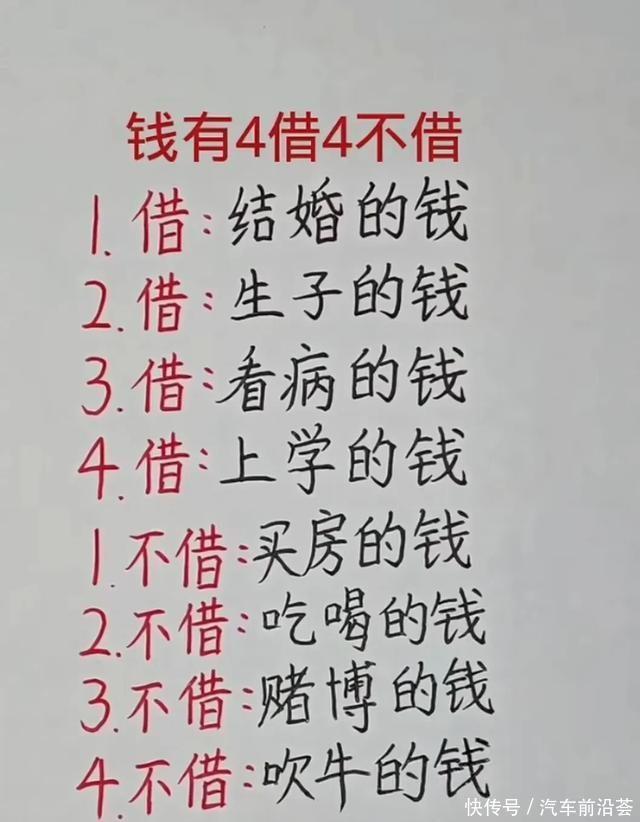 钱有4借4不借
1.借:结婚的钱
2.借:生子的钱
3.借:看病的钱
4.借:上学的钱
1.不借:买房的钱
2.不借:吃喝的钱
3.不借:赌博的钱
4.不借:吹牛的钱
快传号/汽车前沿荟